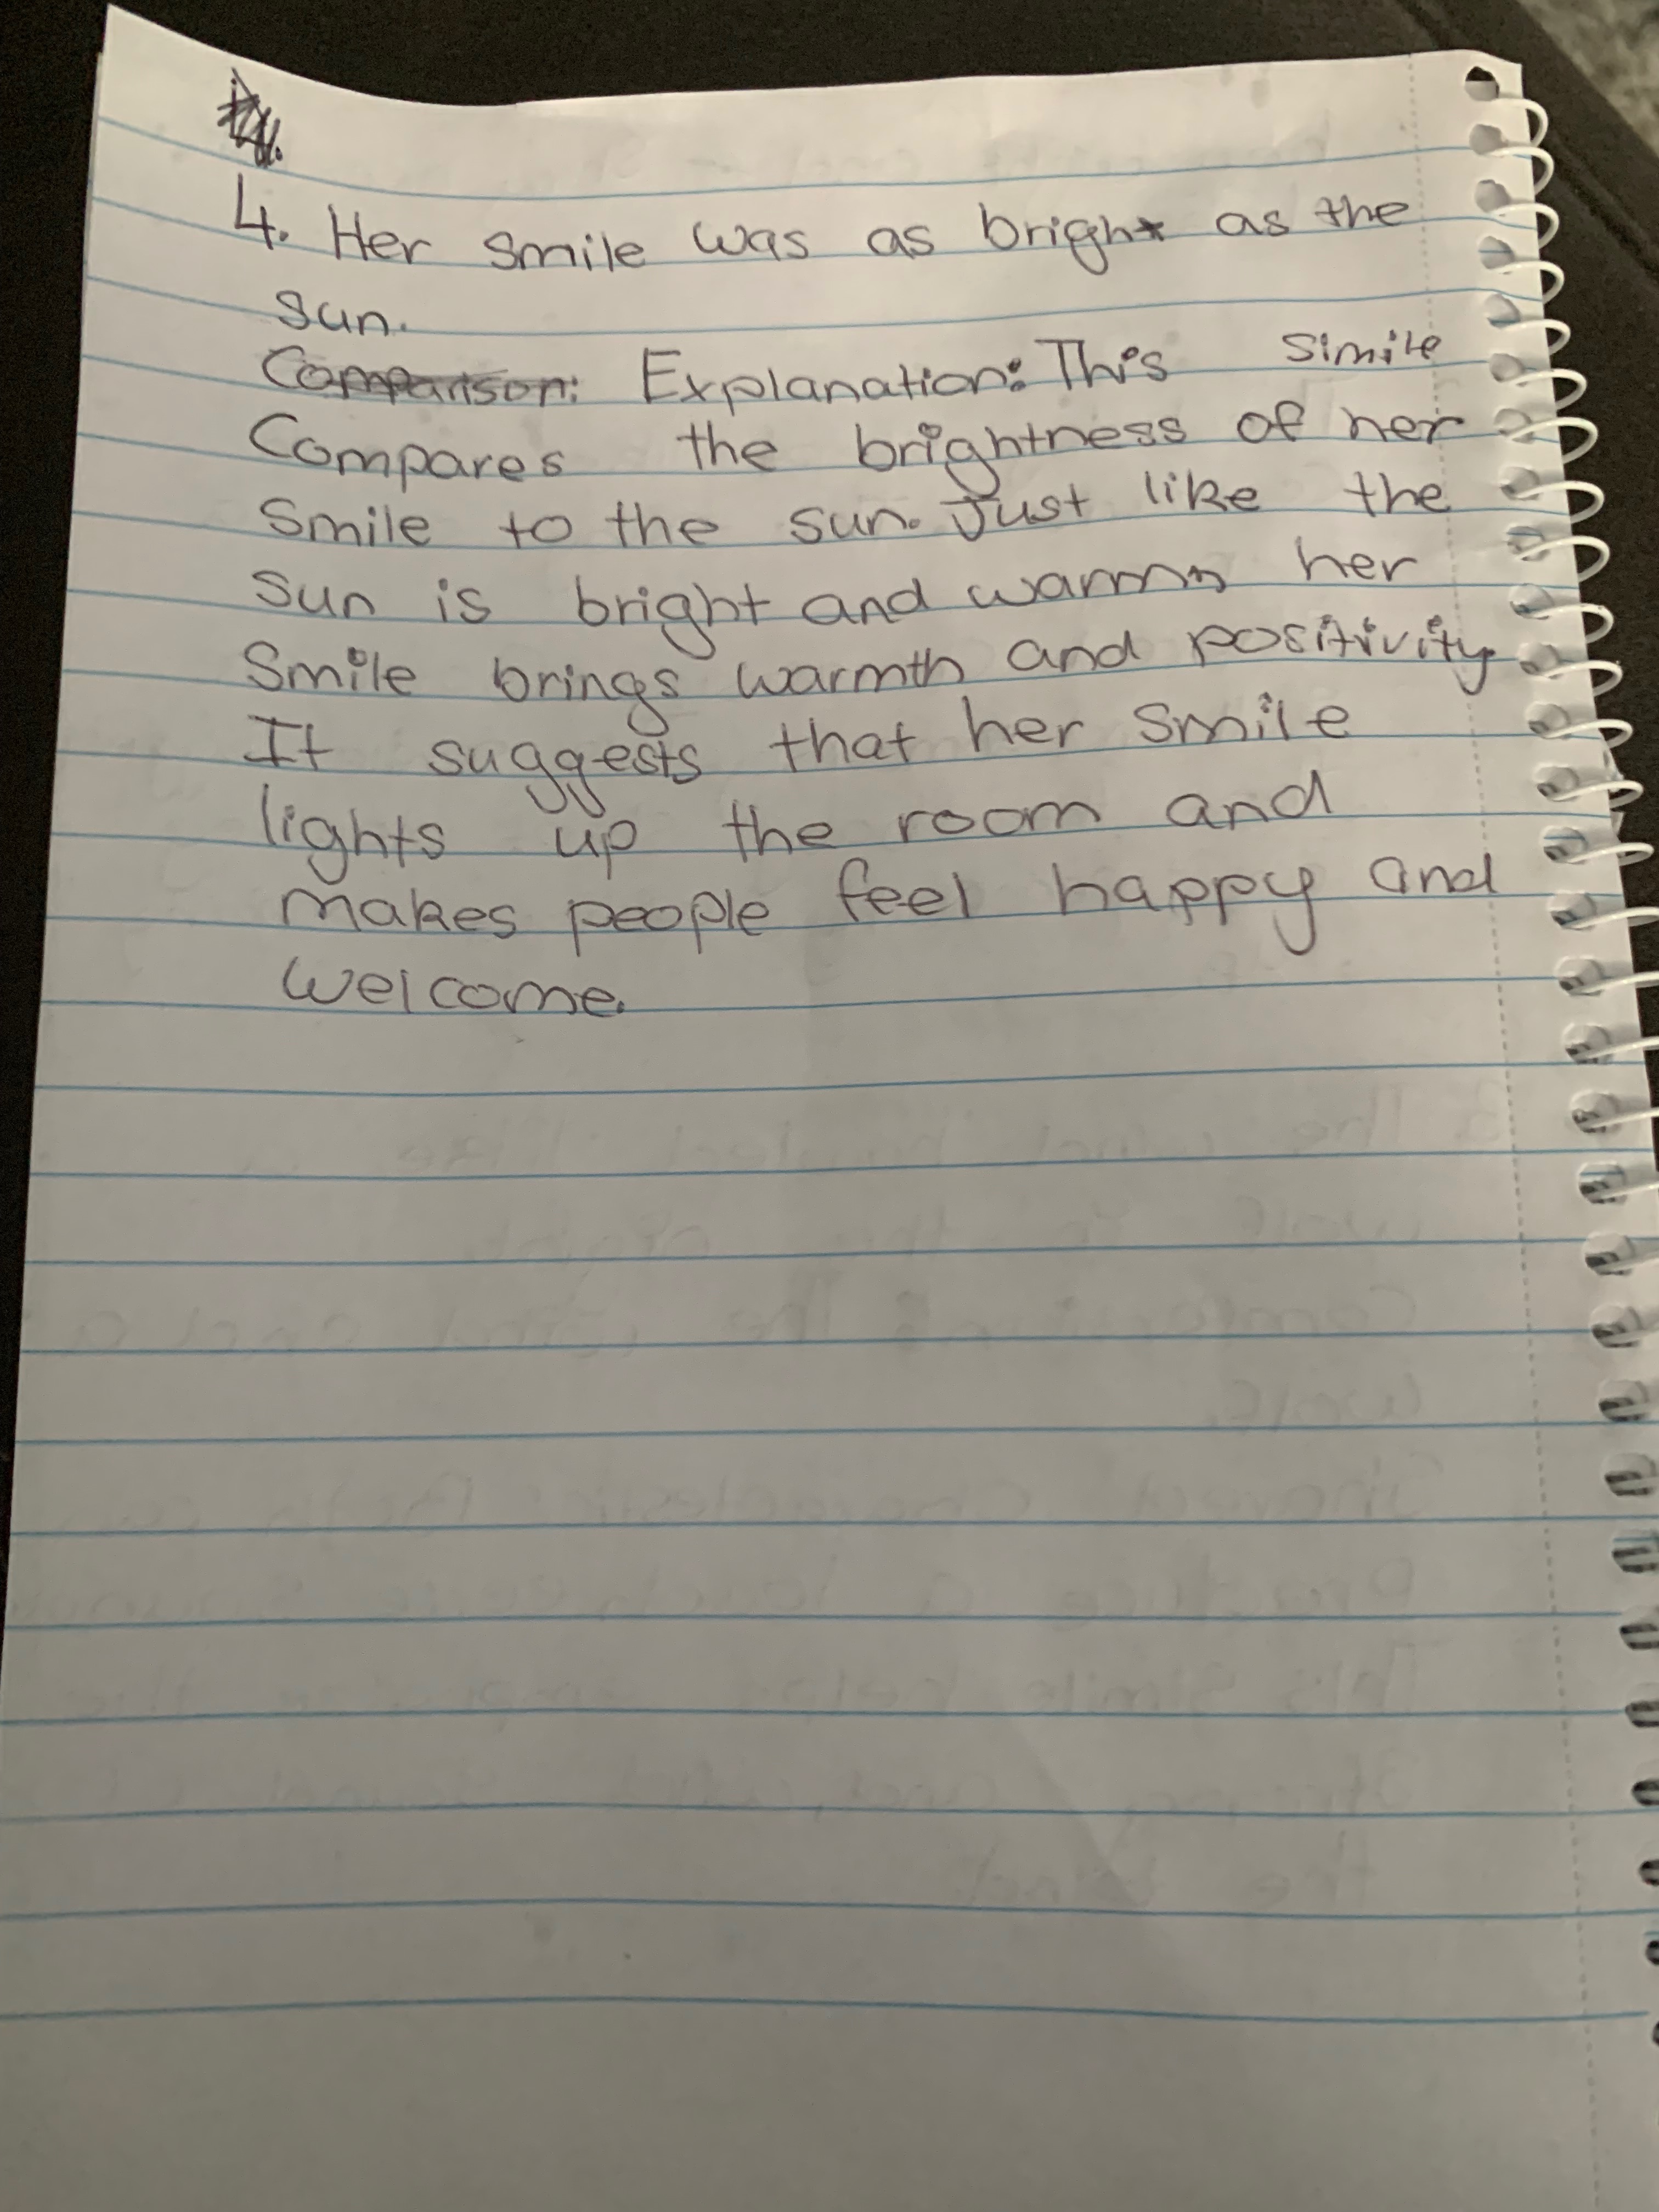 4. Her smile was as bright as the
sun.
Comparison: Explanation: This simile
Compares the brightness of her
smile to the sun. Just like the
sun is bright and warm, her
Smile brings warmth and positivity
It suggests that her smile
lights up the room and
makes people feel happy and
welcome.